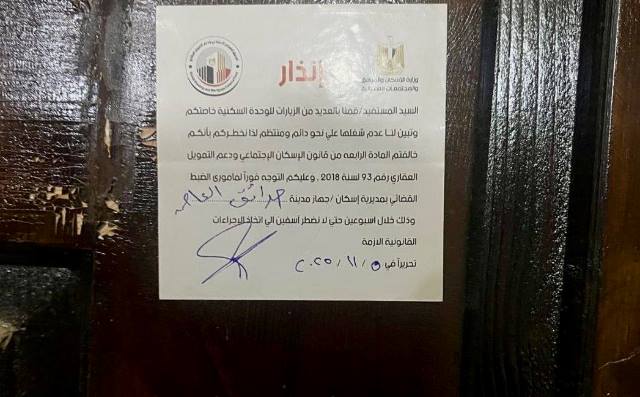 إنذار
وزارة الإسكان والمرافق
والمجتمعات العمرانية
السيد المستفيد/قمنا بالعديد من الزيارات للوحدة السكنية خاصتكم
وتبين لنا عدم شغلها علي نحو دائم ومنتظم لذا نخطركم بأنكم
خالفتم المادة الرابعه من قانون الإسكان الإجتماعي ودعم التمويل
العقاري رقم 93 لسنة 2018 , وعليكم التوجه فوراً لمأموري الضبط
القضائي بمديرية إسكان /جهاز مدينة حدائق العاصمة
وذلك خلال اسبوعين حتي لا نضطر آسفين الي اتخاذ الإجراءات
القانونية الازمة
تحريراً في ٥ / ١١ / ٢٠٢٥